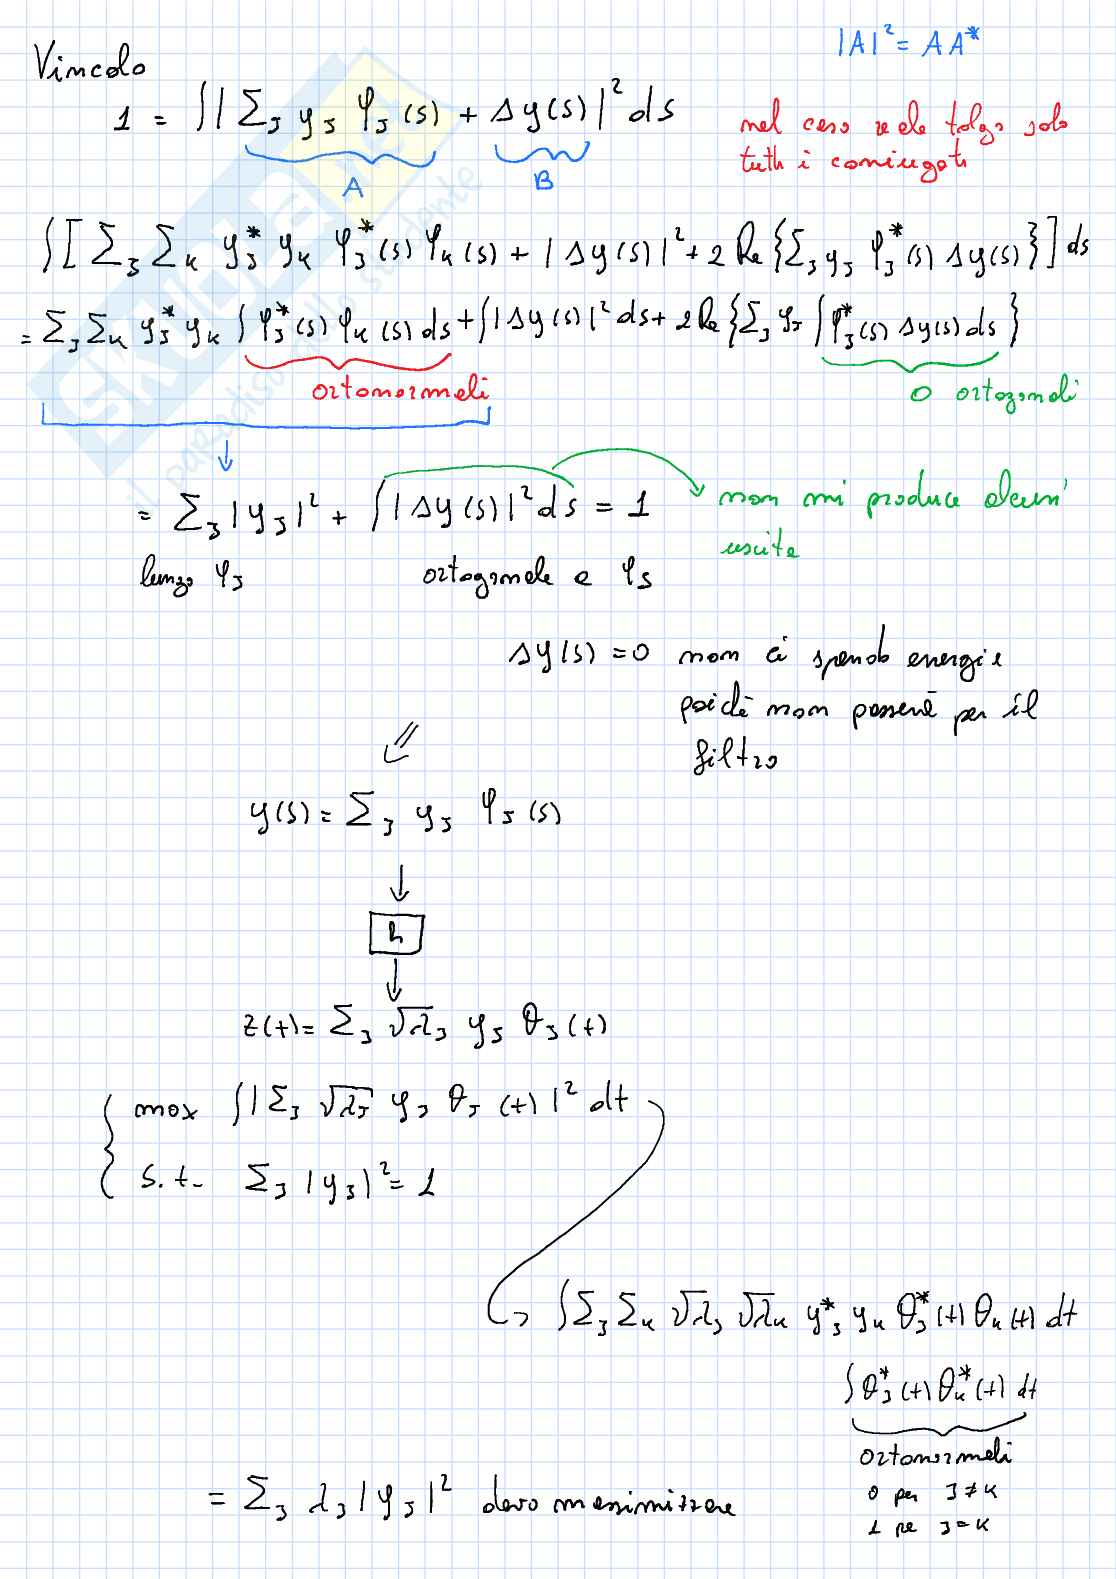 |A|² = A A*
Vincolo
1 = ∫ | Σ_J y_J φ_J(s) + Δy(s) |² ds
A B
nel caso reale tolgo solo
tutti i coniugati
∫ [ Σ_J Σ_K y_J* y_K φ_J*(s) φ_K(s) + |Δy(s)|² + 2 Re { Σ_J y_J φ_J*(s) Δy(s) } ] ds
= Σ_J Σ_K y_J* y_K ∫ φ_J*(s) φ_K(s) ds + ∫ |Δy(s)|² ds + 2 Re { Σ_J y_J ∫ φ_J*(s) Δy(s) ds }
ortonormali
0 ortogonali
= Σ_J |y_J|² + ∫ |Δy(s)|² ds = 1
non mi produce alcun'
uscita
lungo φ_J
ortogonale a φ_J
Δy(s) = 0 non ci spendo energia
poichè non passerà per il
filtro
y(s) = Σ_J y_J φ_J(s)
h
z(t) = Σ_J √λ_J y_J θ_J(t)
max ∫ | Σ_J √λ_J y_J θ_J(t) |² dt
s.t. Σ_J |y_J|² = 1
∫ Σ_J Σ_K √λ_J √λ_K y_J* y_K θ_J*(t) θ_K(t) dt
∫ θ_J*(t) θ_K*(t) dt
ortonormali
0 per J ≠ K
1 pe J = K
= Σ_J λ_J |y_J|² devo massimizzare